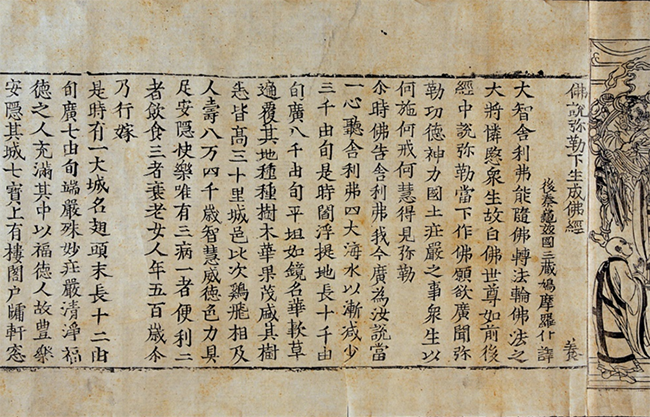 佛說弥勒下生成佛經
後秦龜茲國三藏鳩摩羅什譯 養
大智舍利弗能隨佛轉法輪佛法之
大將憐愍衆生故白佛世尊如前後
經中說弥勒當下作佛願欲廣聞弥
勒功德神力國土莊嚴之事衆生以
何施何戒何慧得見弥勒
尒時佛告舍利弗我今廣為汝說當
一心聽舍利弗四大海水以漸减少
三千由旬是時閻浮提地長十千由
旬廣八千由旬平坦如鏡名華軟草
遍覆其地種種樹木華果茂盛其樹
悉皆高三十里城邑比次鷄飛相及
人壽八万四千歲智慧威德色力具
足安隱快樂唯有三病一者便利二
者飲食三者衰老女人年五百歲尒
乃行嫁
是時有一大城名翅頭末長十二由
旬廣七由旬端嚴殊妙莊嚴清淨福
德之人充滿其中以福德人故豊樂
安隱其城七寶上有樓閣户牖軒窓